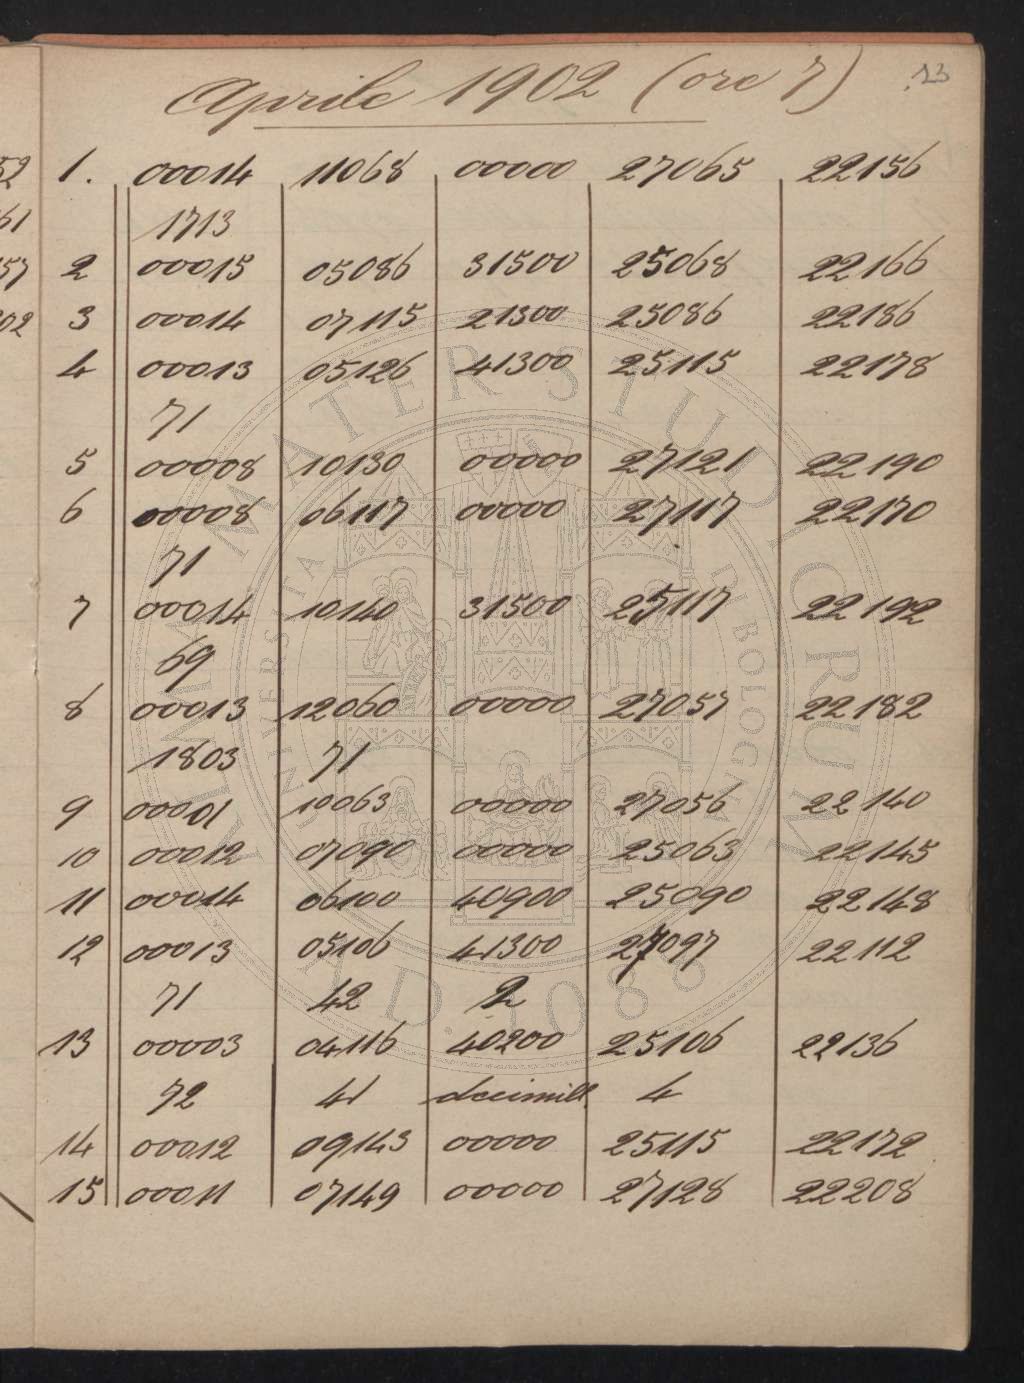 13
Aprile 1902 (ore 7)
1. 00014 11068 00000 27065 22156
1713
2 00015 05086 31500 25068 22166
3 00014 07115 21300 25086 22186
4 00013 05126 41300 25115 22178
71
5 00008 10130 00000 27121 22190
6 00008 06117 00000 27117 22170
71
7 00014 10140 31500 25117 22192
69
8 00013 12060 00000 27057 22182
1803 71
9 00001 10063 00000 27056 22140
10 00012 07090 00000 25063 22145
11 00014 06100 40900 25090 22148
12 00013 05106 41300 27097 22112
71 42 2
13 00003 04116 40200 25106 22136
72 41 decimill. 4
14 00012 09143 00000 25115 22172
15 00011 07149 00000 27128 22208
52
61
57
202
ALMA MATER STUDIORUM
UNIVERSITÀ DI BOLOGNA
A.D. 1088